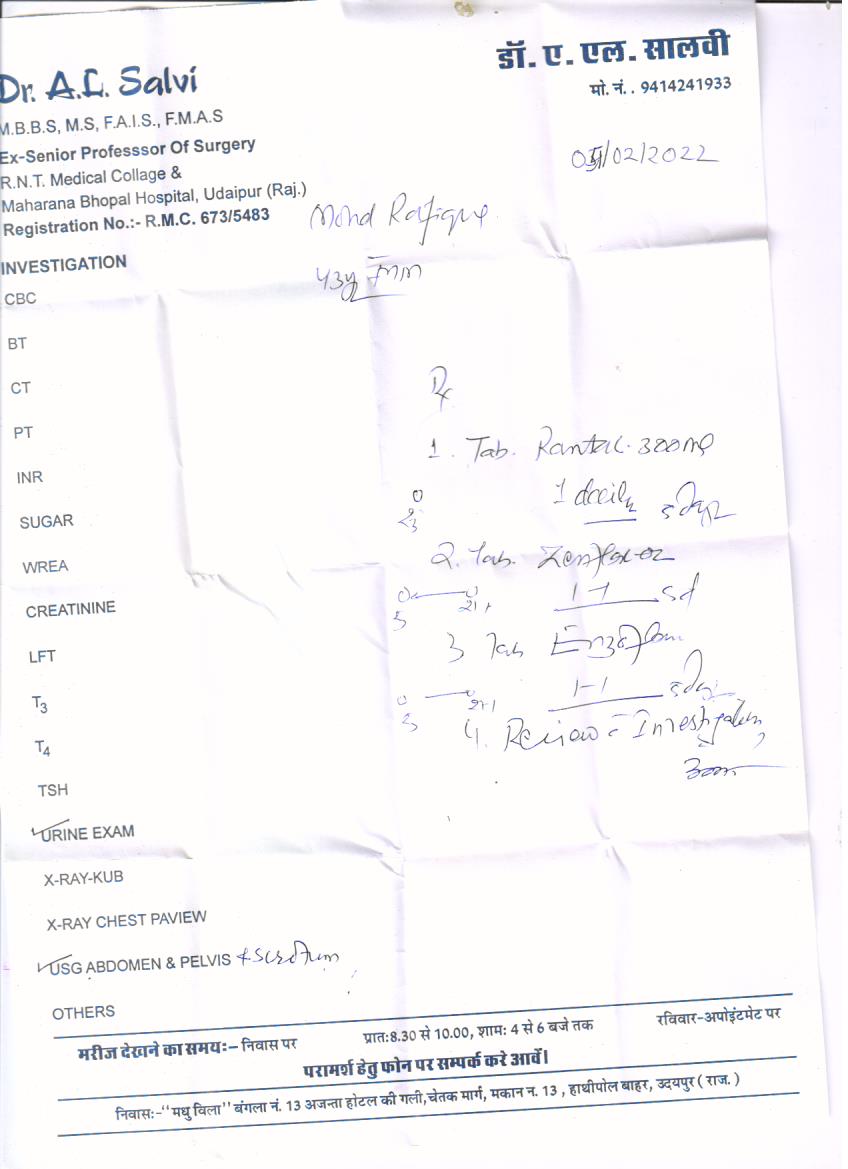 डॉ. ए. एल. सालवी
मो. नं. . 9414241933
Dr. A.L. Salvi
M.B.B.S, M.S, F.A.I.S., F.M.A.S
Ex-Senior Professsor Of Surgery
R.N.T. Medical Collage &
Maharana Bhopal Hospital, Udaipur (Raj.)
Registration No.:- R.M.C. 673/5483
/02/2022
Mohd Rafique
43y
INVESTIGATION
CBC
BT
CT
PT
INR
SUGAR
WREA
CREATININE
LFT
T3
T4
TSH
URINE EXAM
X-RAY-KUB
X-RAY CHEST PAVIEW
USG ABDOMEN & PELVIS + scrotum
OTHERS
Rx
1. Tab. Rantac 300mg
1 daily
2. Tab. Zenflox-oz
1-1 5d
3 Tab Enzoflam
1-1
4. Review Investigation
मरीज देखने का समय:- निवास पर प्रातः8.30 से 10.00, शामः 4 से 6 बजे तक रविवार-अपोइंटमेट पर
परामर्श हेतु फोन पर सम्पर्क करे आवें।
निवासः-"मधु विला" बंगला नं. 13 अजन्ता होटल की गली,चेतक मार्ग, मकान न. 13 , हाथीपोल बाहर, उदयपुर ( राज. )